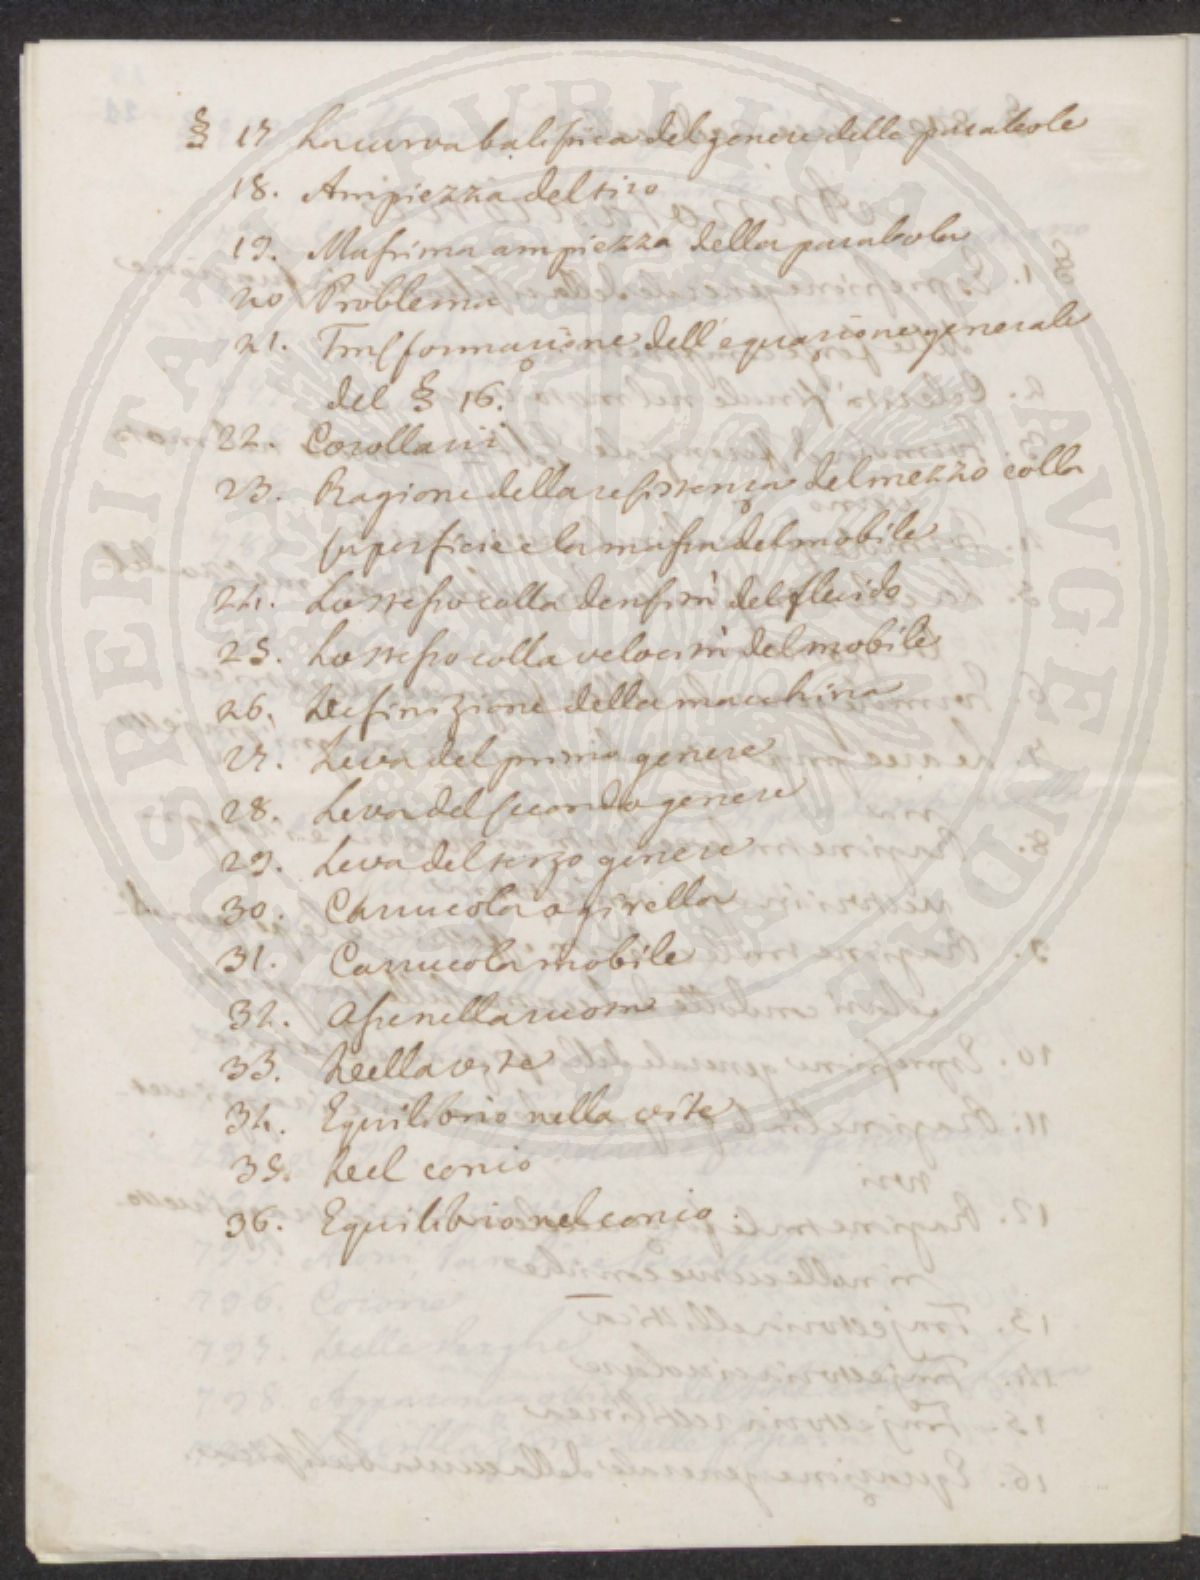 § 17 La curva balistica del genere delle parabole
18. Ampiezza del tiro
19. Massima ampiezza della parabola
20 Problema
21. Trasformazione dell'equazione generale
del § 16.
22. Corollarii
23. Ragione della resistenza del mezzo colla
superficie e la massa del mobile
24. Lo stesso colla densità del fluido
25. Lo stesso colla velocità del mobile
26. Definizione della macchina
27. Leva del primo genere
28. Leva del secondo genere
29. Leva del terzo genere
30. Carrucola o girella
31. Carrucola mobile
32. Asse nella ruota
33. Della vite
34. Equilibrio nella vite
35. Del conio
36. Equilibrio nel conio.
PERITATI PVBLICAE AVGENDAE